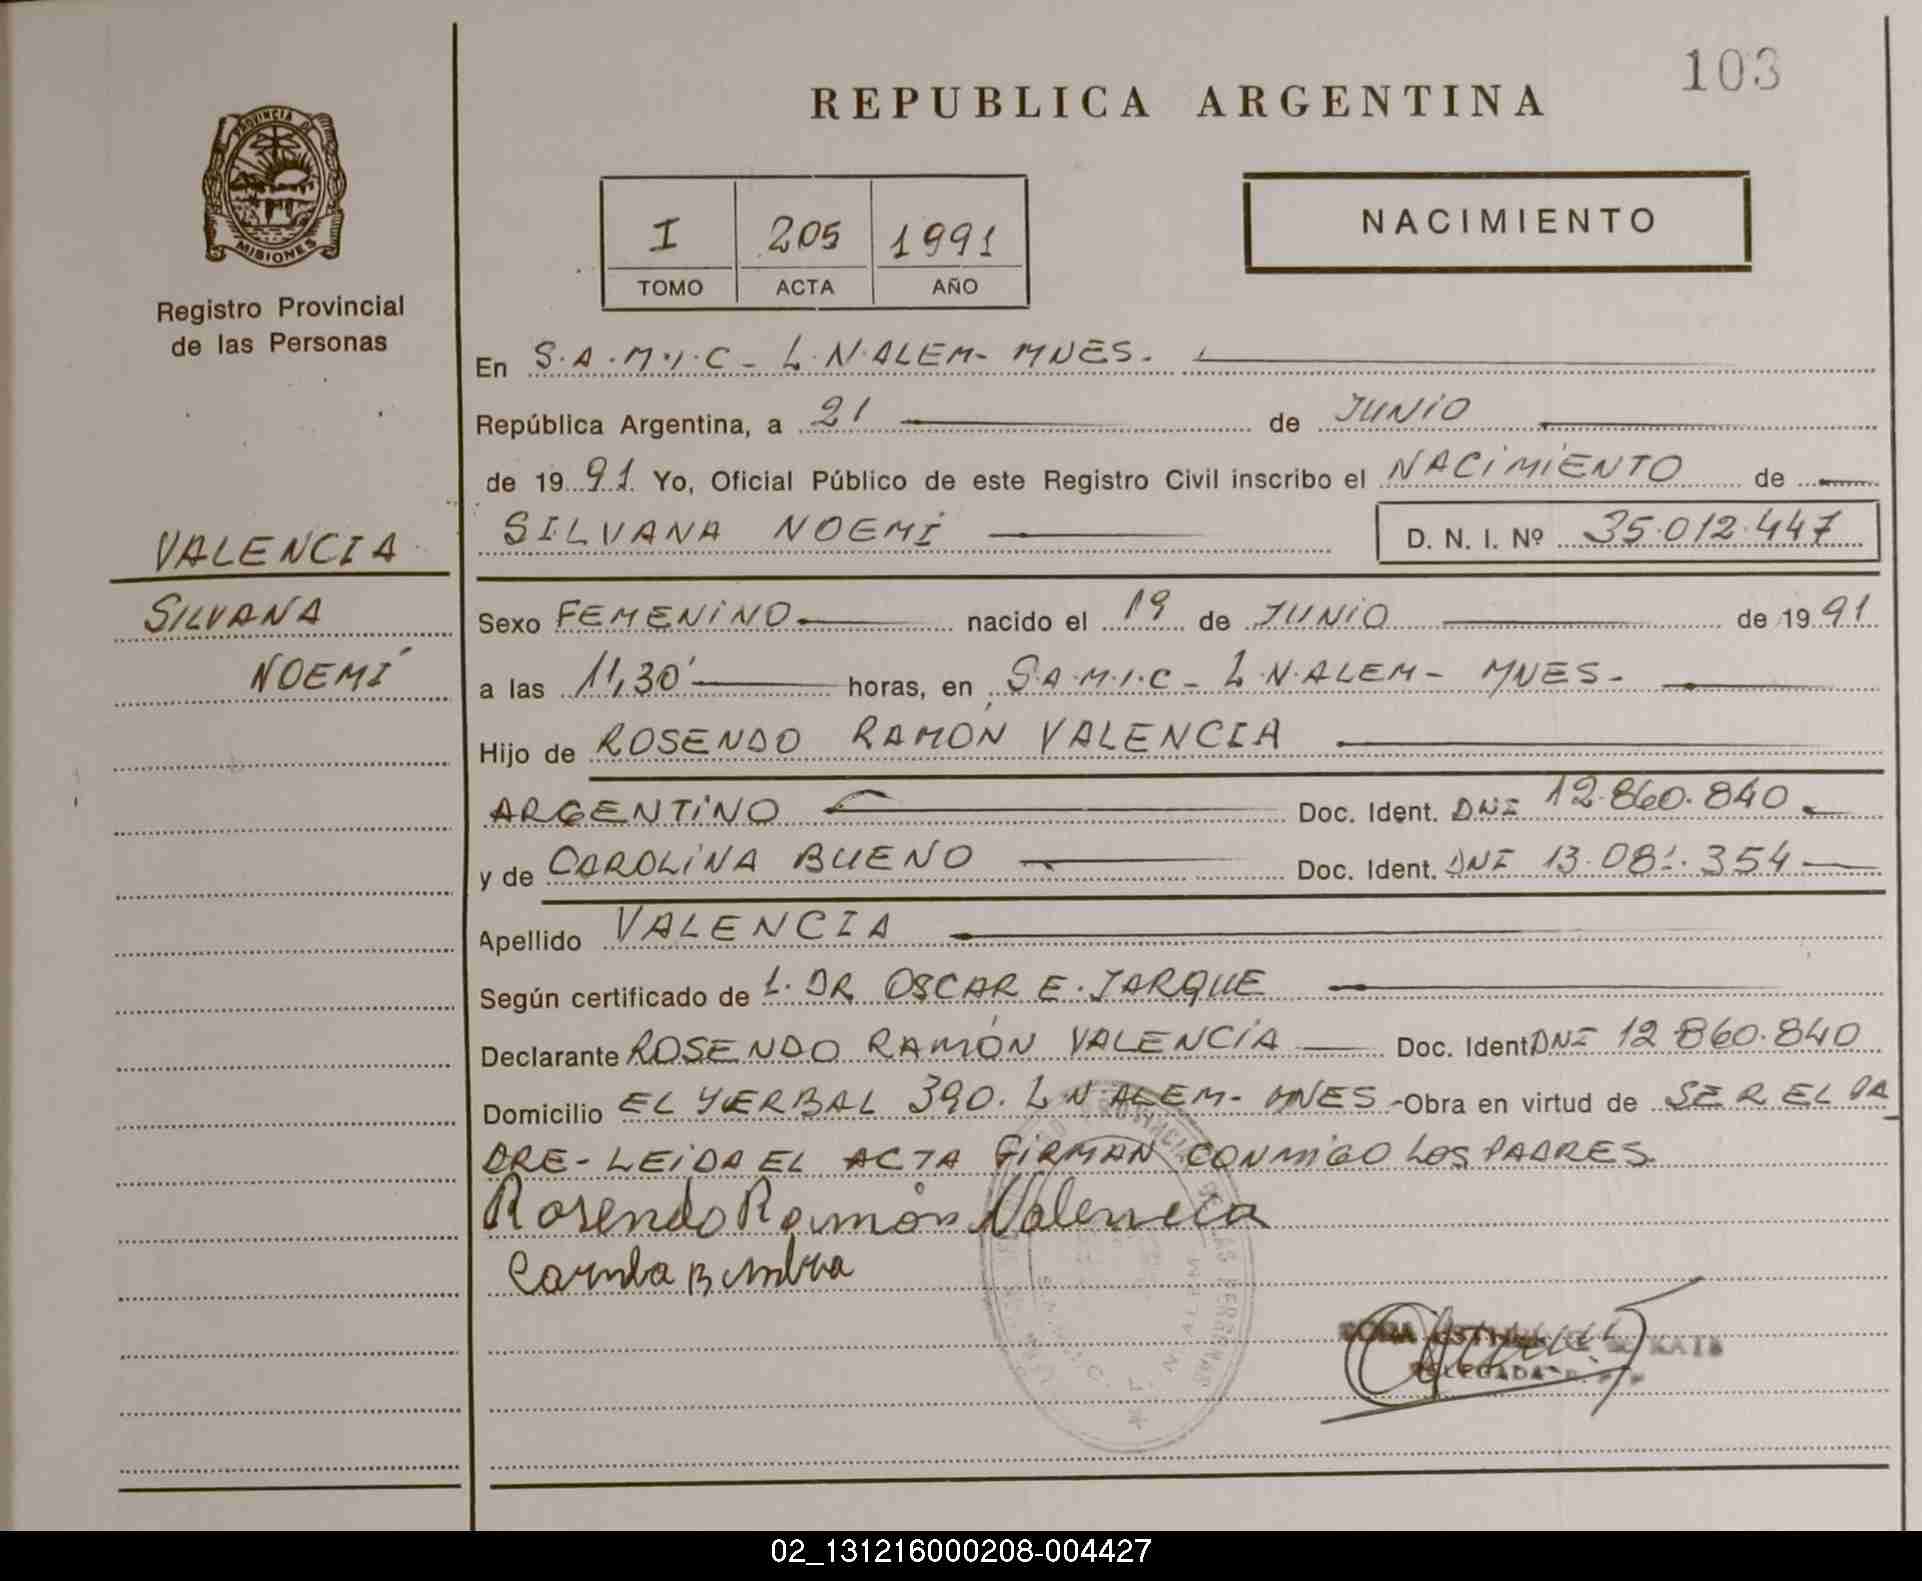 103
REPUBLICA ARGENTINA
PROVINCIA DE
MISIONES
Registro Provincial
de las Personas
NACIMIENTO
I 205 1991
TOMO ACTA AÑO
En S.A.M.I.C - L.N.ALEM - MNES.
República Argentina, a 21 de JUNIO
de 1991 Yo, Oficial Público de este Registro Civil inscribo el NACIMIENTO de
SILVANA NOEMÍ D. N. I. Nº 35.012.447
VALENCIA
SILVANA
NOEMÍ
Sexo FEMENINO nacido el 19 de JUNIO de 1991
a las 11,30' horas, en S.A.M.I.C - L.N.ALEM - MNES.
Hijo de ROSENDO RAMÓN VALENCIA
ARGENTINO Doc. Ident. DNI 12.860.840
y de CAROLINA BUENO Doc. Ident. DNI 13.081.354
Apellido VALENCIA
Según certificado de 1. DR OSCAR E. JARQUE
Declarante ROSENDO RAMÓN VALENCIA Doc. Ident DNI 12.860.840
Domicilio EL YERBAL 390. L.N.ALEM - MNES - Obra en virtud de SER EL PA
DRE - LEIDA EL ACTA FIRMAN CONMIGO LOS PADRES
Rosendo Ramón Valencia
DELEGADA
02_131216000208-004427